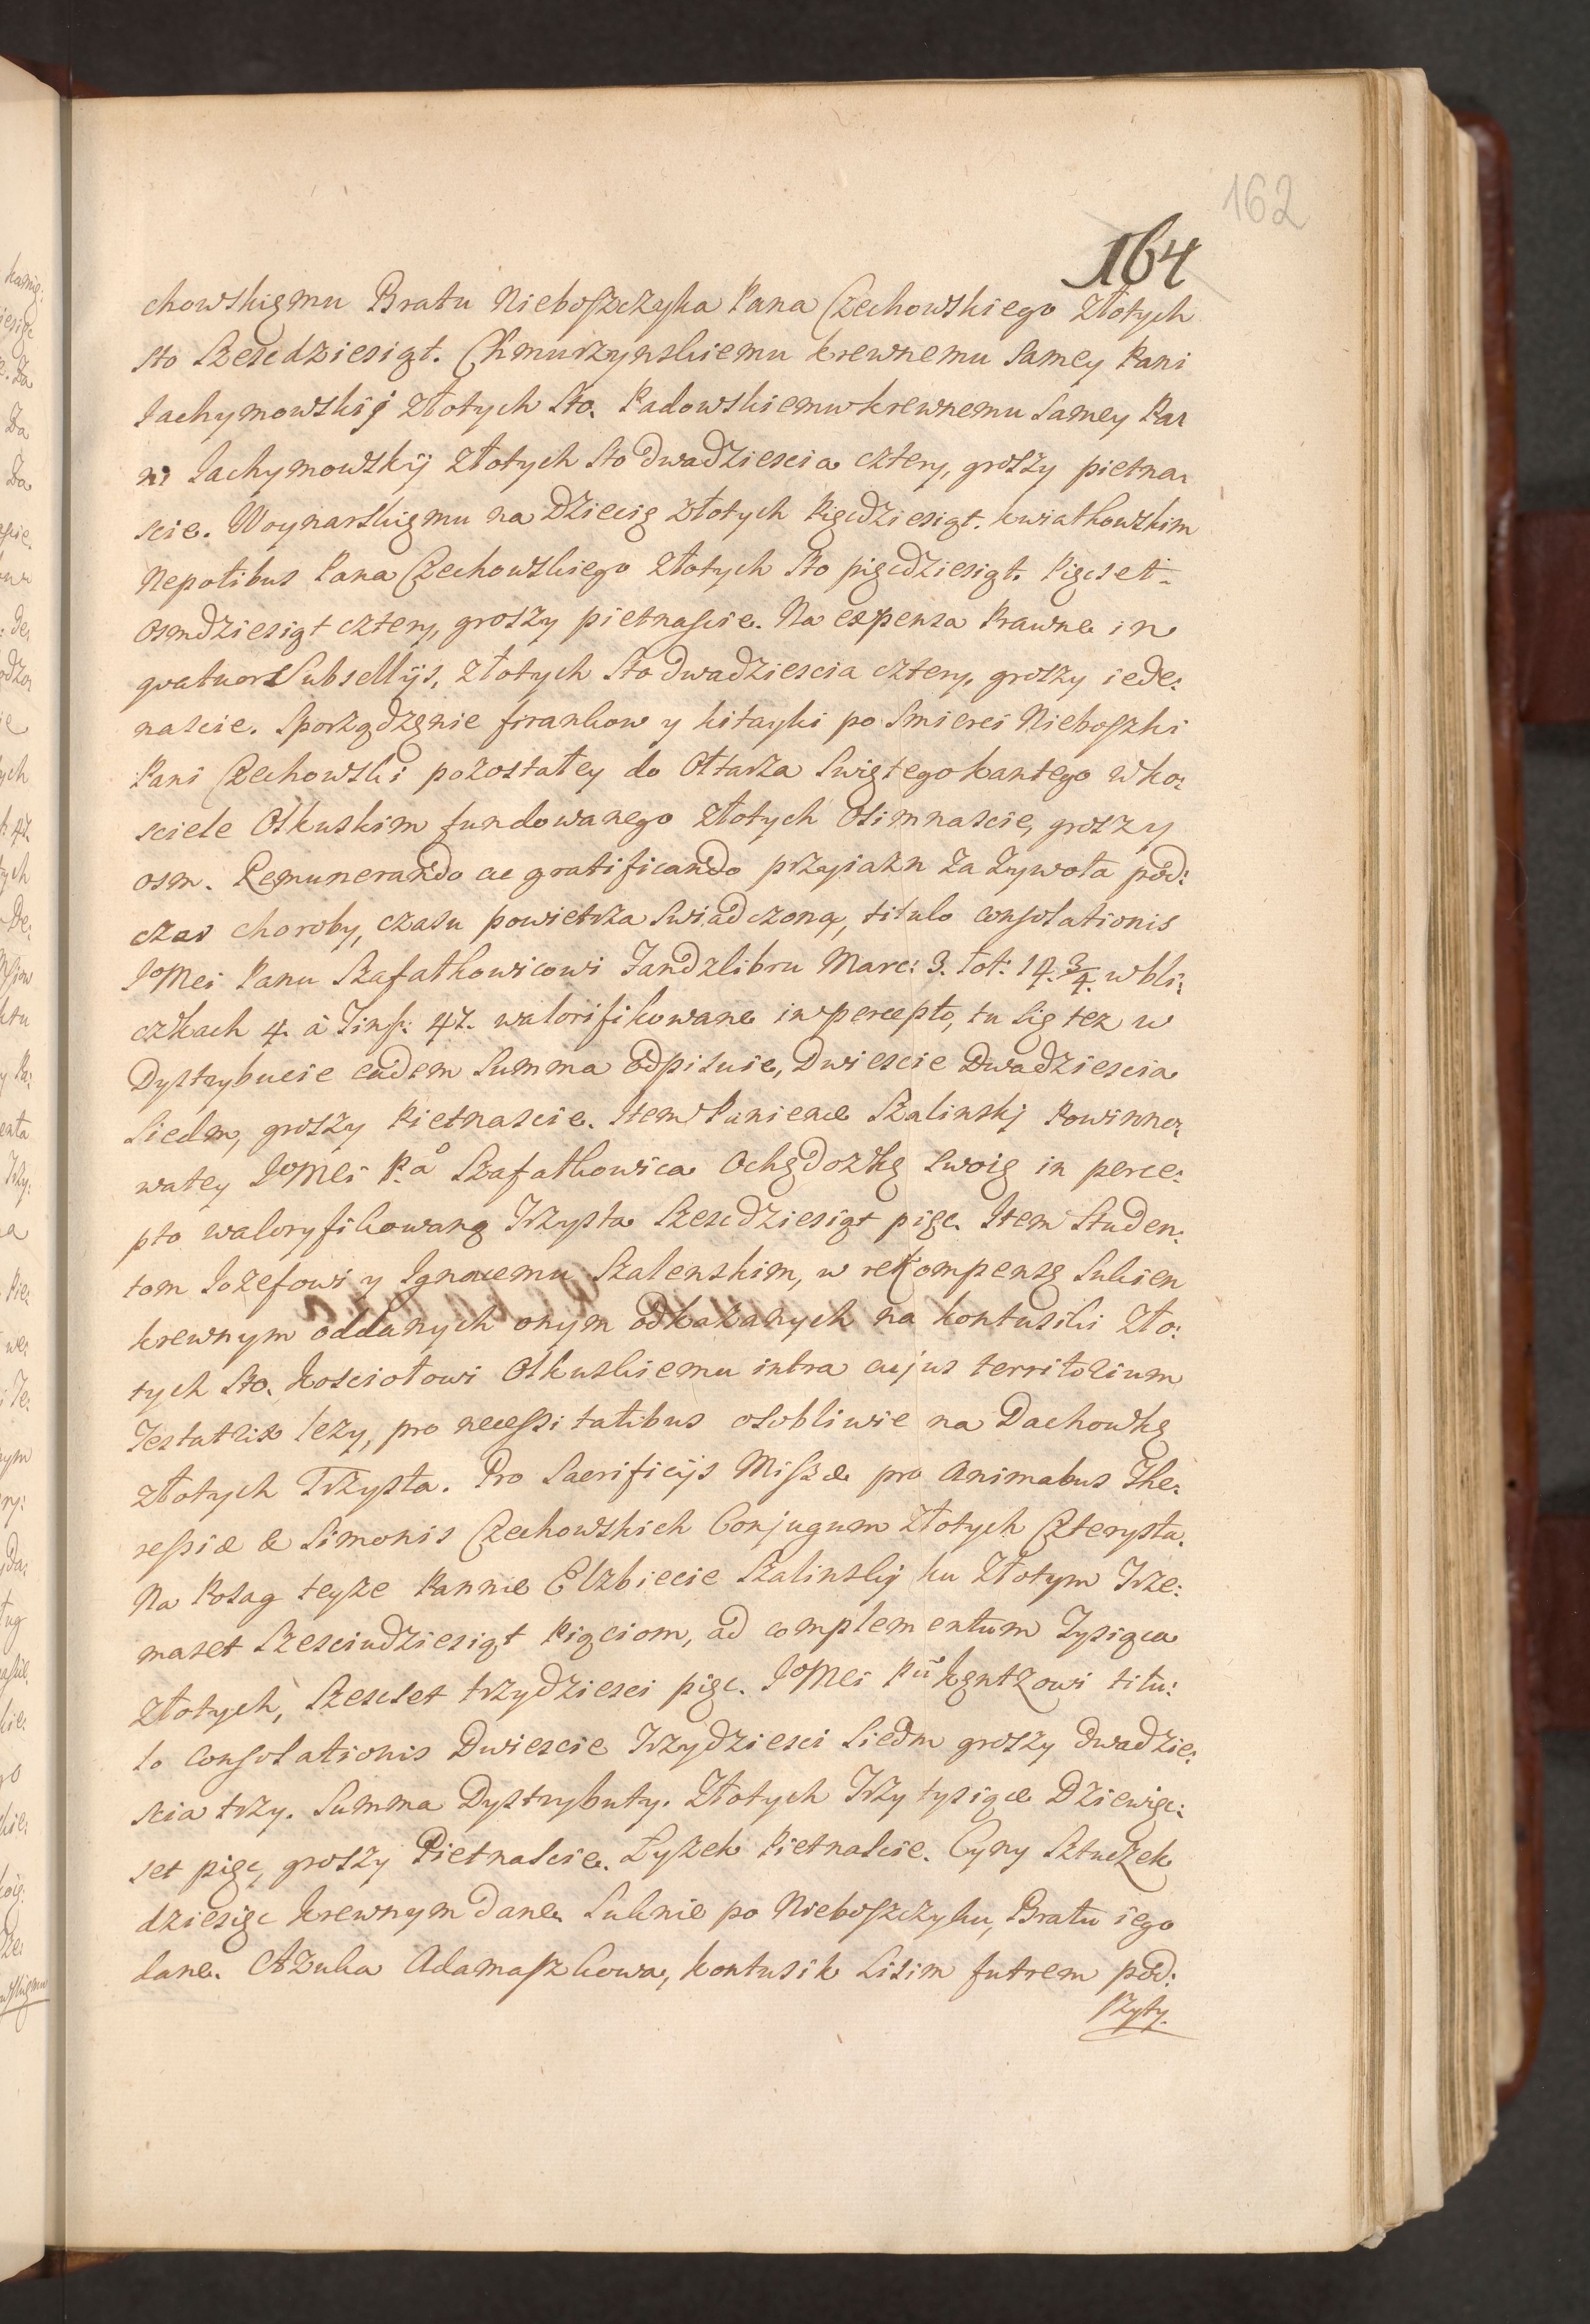 162
164
chowskięmu Bratu Nieboszczyka Pana Czechowskiego Złotych
sto Szescdziesiąt. Chmurzynskiemu krewnemu samey Pani
Jachymowskij złotych sto. Padowskiemu krewnemu samey Pa:
ni Jachymowskij złotych sto dwadziescia cztery, groszy pietna:
scie. Woynarskięmu na dziecię złotych Pięcdziesiąt. kwiatkowskim
Nepotibus Pana Czechowskiego złotych sto pięcdziesiąt. Pięcset
osmdziesiąt cztery, groszy pietnascie. Na expensa Prawne in
quatuor Subsellijs, złotych sto dwadziescia cztery, groszy iede:
nascie. Sporządzęnie firankow y kitayki po smierci Nieboszki
Pani Czechowski pozostałey do Ołtarza Swiętego kantego w ko:
sciele Olkuskim fundowanego złotych Osimnascie, groszy
osm. Remunerando ac gratificando przyiazn za zywota pod:
czas choroby, czasu powietrza swiadczoną, titulo consolationis
JoMci Panu Szafatkowicowi Tandzlibru Marc: 3. Lot: 14. 3/4. w bli:
czkach 4. à Tinf: 47. walorifikowane in percepto, tu się tez w
Dystrybucie eadem Summa odpisuie, Dwiescie Dwadziescia
siedm, groszy Pietnascie. Item Panience Szalinskj Powinno:
watey JoMci Pa Szafatkowica Ochędozkę swoię in perce:
pto waloryfikowaną Trzysta Szescdziesiąt pięc. Item Studen:
tom Jozefowi y Ignacemu Szalenskim, w rekompensę sukien
krewnym oddanych onym odkazanych na kontusiki zło:
tych sto. kosciołowi Olkuskiemu intra cujus territorium
Testatrix lezy, pro necessitatibus osobliwie na Dachowkę
złotych Trzysta. Pro Sacrificijs Missæ pro Animabus The:
ressiæ & Simonis Czechowskich Conjugum złotych Czterysta.
Na Posag teyze Pannie Elzbiecie Szalinskij ku złotym Trze:
maset Szesciudziesiąt Pięciom, ad complementum Tysiąca
złotych, Szescset trzydziesci pięc. JoMci Pu kęntzowi titu:
lo consolationis Dwiescie Trzydziesci siedm groszy dwadzie:
scia trzy. Summa Dystrybuty. Złotych Trzy tysiące Dziewięc:
set pięc, groszy Pietnascie. Łyzek Pietnascie. Cyny Sztuczek
dziesięc krewnym dane. Suknie po Nieboszczyku, Bratu iego
dane. Azuka Adamaszkowa, kontusik lisim futrem pod:
szyty.